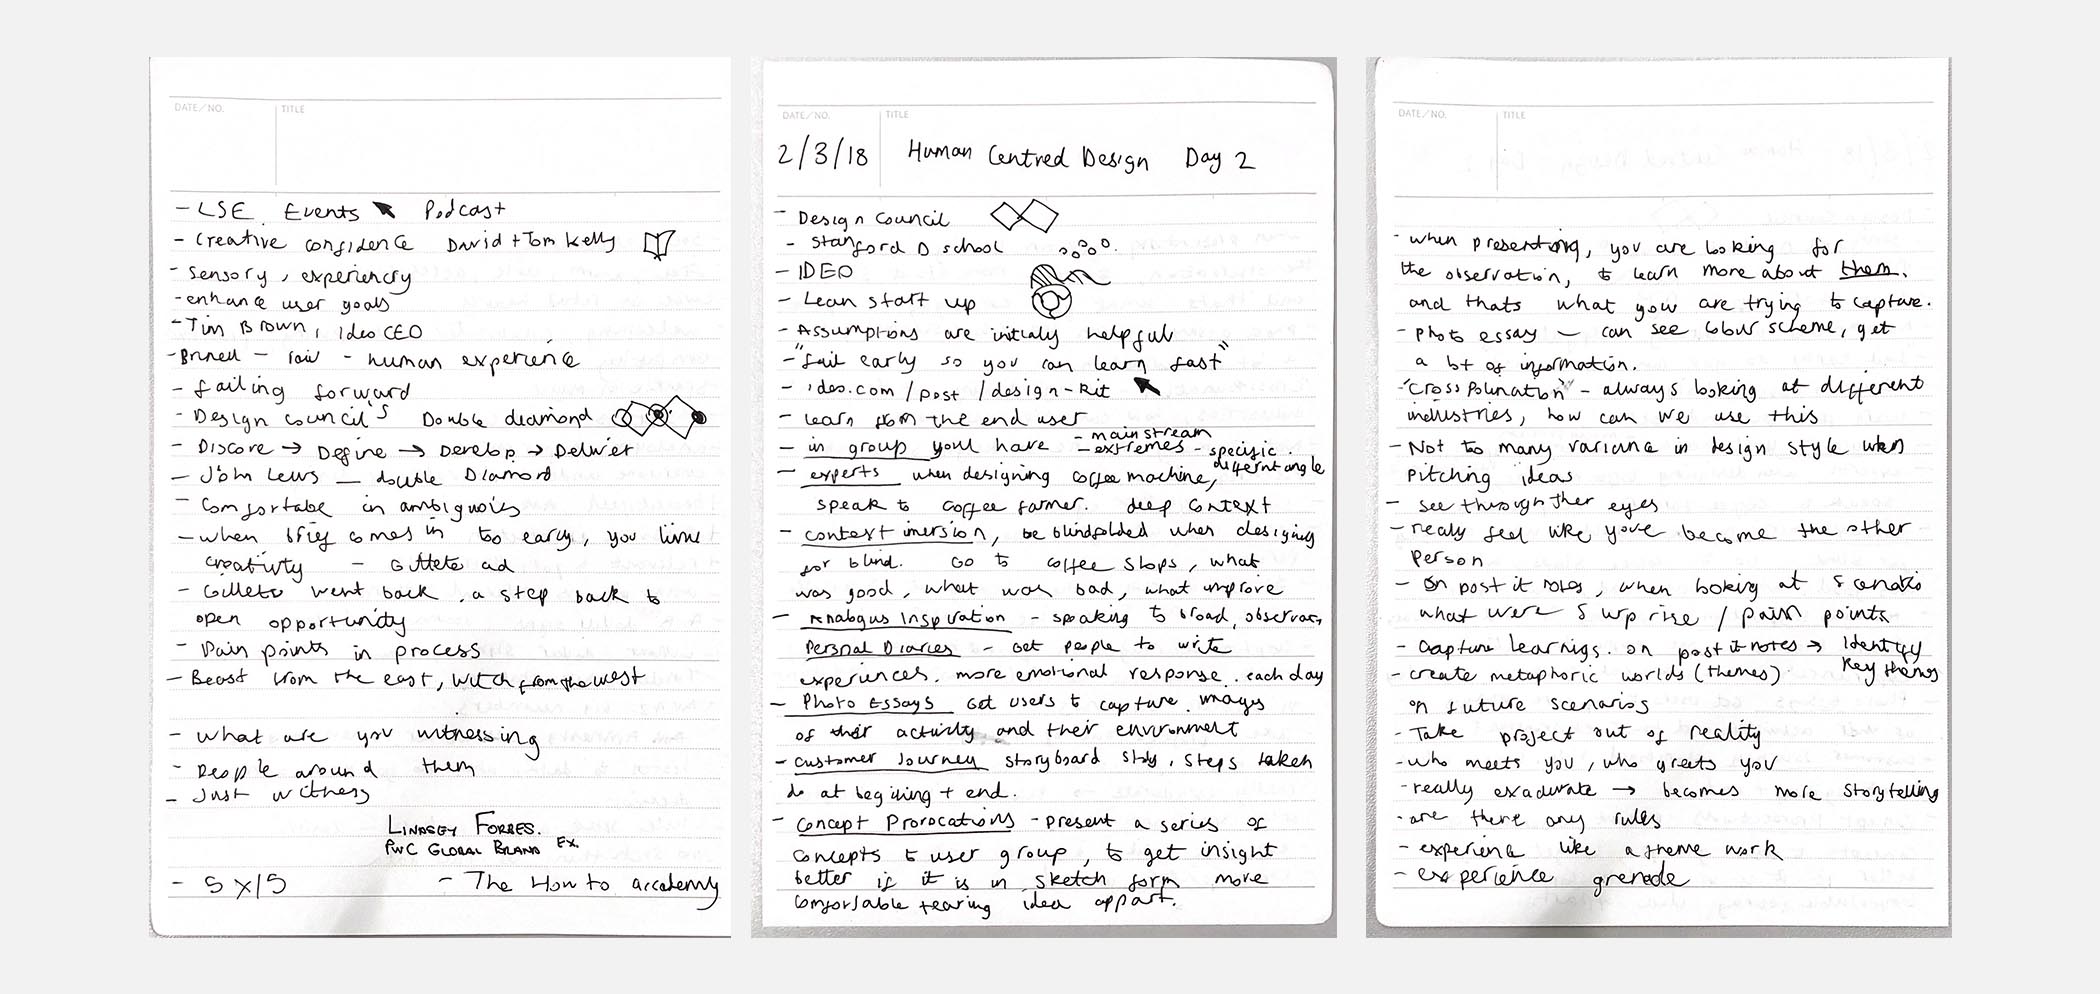 DATE/NO. TITLE
- LSE Events Podcast
- Creative confidence David + Tom Kelly
- Sensory, experiency
- enhance user goals
- Tim Brown, Ideo CEO
- human experience
- failing forward
- Design council's Double diamond
- Discore → Define → Develop → Deliver
- John Lewis – double Diamond
- Comfortabe in ambiguois
- when brief comes in too early, you limit
creativity - Gillete ad
- Gillete went back . a step back to
open opportunity
- Pain points in process
- Beast from the east, witch from the west
- what are you witnessing
- people around them
- Just witness
LINDSEY FORBES.
PWC GLOBAL BRAND EX.
- 5 x 15 - The How to accademy
DATE/NO. TITLE
2/3/18 Human Centred Design Day 2
- Design Council
- Stanford D school
- IDEO
- Lean start up
- Assumptions are initialy helpful
- "fail early so you can learn fast"
- ideo.com/post/design-kit
- learn from the end user
- in group youl have - mainstream
- extremes - specific.
different angle
- experts when designing coffee machine,
speak to coffee farmer. deep context
- context imersion, be blindfolded when designing
for blind. Go to coffee shops, what
was good, what was bad, what improve
- Analogus Inspiration - speaking to broad, observation
Personal Diaries - Get people to write
experiences. more emotional response. each day
- Photo Essays Get users to capture images
of their activity and their environment
- Customer Journey storyboard story, steps taken
do at begining + end.
- Concept Provocations - present a series of
concepts to user group, to get insight
better if it is in sketch form more
comforlable tearing idea appart.
DATE/NO. TITLE
- when presenting, you are looking for
the observation, to learn more about them.
and thats what your are trying to capture.
- Photo essay – can see colour scheme, get
a lot of information.
- "Cross Polination" - always looking at different
industries, how can we use this
- Not too many variance in design style when
pitching ideas
- see through ther eyes
- realy feel like youve become the other
person
- On post it notes, when looking at scenario
what were surprise / pain points
- Capture learnigs. on post it notes → Identify
key things
- create metaphoric worlds (themes).
on future scenarios
- Take project out of reality
- who meets you, who greets you
- really exadurate → becomes more storytelling
- are there any rules
- experience like a theme work
- experience grenade